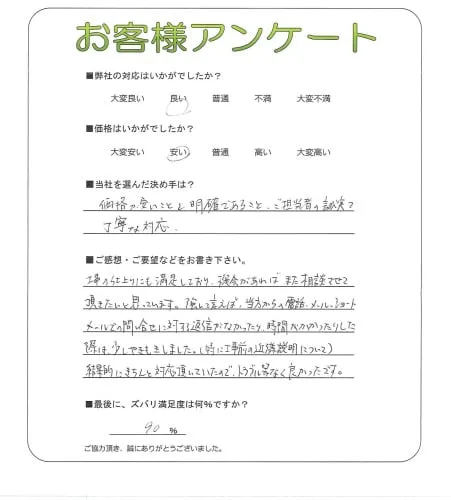 お客様アンケート
■弊社の対応はいかがでしたか？
大変良い 良い 普通 不満 大変不満
■価格はいかがでしたか？
大変安い 安い 普通 高い 大変高い
■当社を選んだ決め手は？
価格が安いことと明確であること、ご担当者の誠実で
丁寧な対応。
■ご感想・ご要望などをお書き下さい。
工事の仕上りにも満足しており、機会があればまた相談させて
頂きたいと思っています。強いて言えば、当方からの電話、メール、ショート
メールでの問い合せに対する返信がなかったり、時間がかかったりした
際は、少しやきもきしました。(特に工事前の近隣説明について)
結果的にきちんと対応頂いていたので、トラブル等なく良かったです。
■最後に、ズバリ満足度は何%ですか？
90 %
ご協力頂き、誠にありがとうございました。